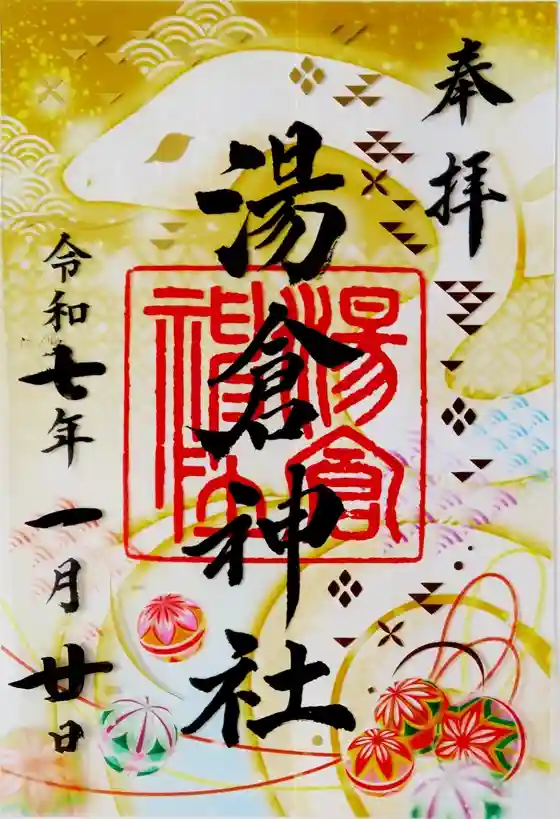 奉拝
湯倉神社
湯倉神社
令和七年一月廿日